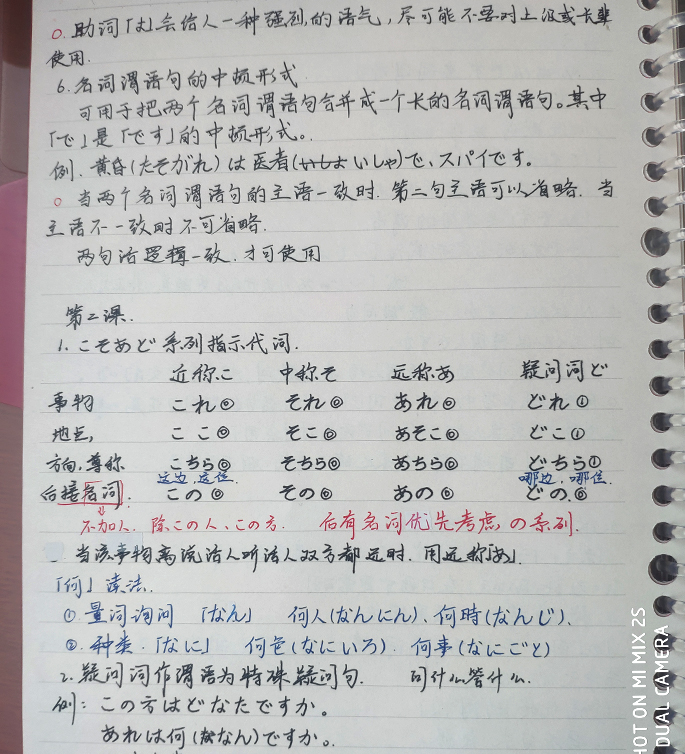 ○. 助词「は」会给人一种强烈的语气，尽可能不要对上级或长辈
使用.
6. 名词谓语句的中顿形式
可用于把两个名词谓语句合并成一个长的名词谓语句。其中
「で」是「です」的中顿形式。
例. 黄昏(たそがれ)は医者(いしょいしゃ)で、スパイです。
○ 当两个名词谓语句的主语一致时. 第二句主语可以省略. 当
主语不一致时不可省略.
两句话逻辑一致. 才可使用
第二课.
1. こそあど系列指示代词.
近称こ 中称そ 远称あ 疑问词ど
事物 これ⓪ それ⓪ あれ⓪ どれ①
地点, ここ⓪ そこ⓪ あそこ⓪ どこ①
方向,尊称 こちら⓪ そちら⓪ あちら⓪ どちら①
这边,这位 哪边,哪位
后接名词. この⓪ その⓪ あの⓪ どの⓪
不加人. 除この人、この方. 后有名词优先考虑の系列.
当该事物离说话人听话人双方都远时. 用远称「あ」.
「何」读法.
① 量词询问 「なん」 何人(なんにん)、何時(なんじ).
② 种类.「なに」 何色(なにいろ). 何事(なにごと)
2. 疑问词作谓语为特殊疑问句. 问什么答什么.
例: この方はどなたですか。
あれは何(なん)ですか。
SHOT ON MI MIX 2S
DUAL CAMERA